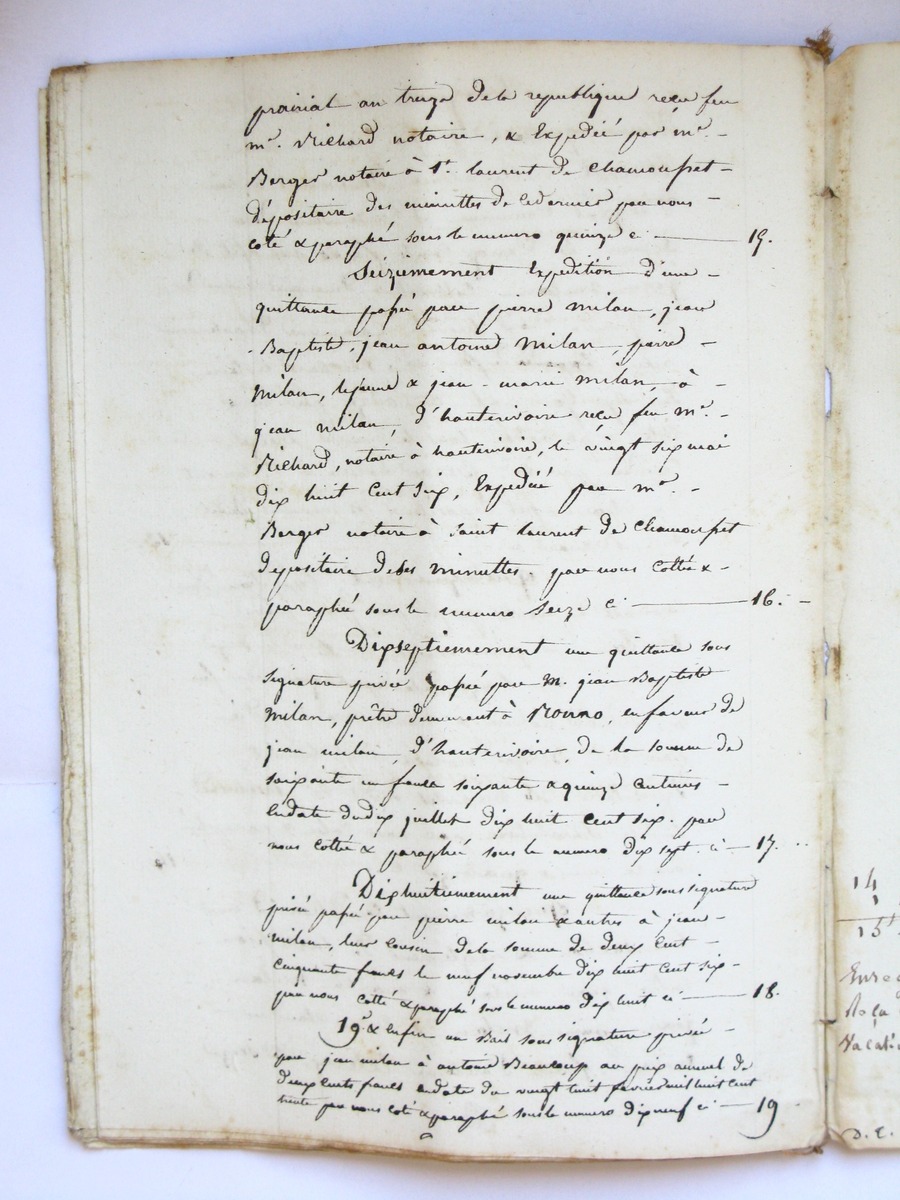 prairial an treize de la republique reçu feu
me. Richard notaire, & Expedié par me. -
Berger notaire à St. laurent de Chamousset -
dépositaire des minuttes de cedernier par nous -
coté & paraphé sous le numero quinze ci — 15.
Seiziemement Expedition d'une -
quittance passé par pierre milan, jean
- Baptiste, jean antoine Milan, pierre -
Milan, lejeune & jean - marie milan, à -
jean milan, d'hauterivoire reçu feu me. -
Richard, notaire à hauterivoire, le vingt six mai
dix huit Cent six, Expedié par me. -
Berger notaire à Saint laurent de Chamousset
depositaire deses minuttes. par nous Cotté & -
paraphé sous le numero Seize ci — 16. -
Dixseptiemement une quittance sous
signature privée passée par M. jean Baptiste
Milan, prêtre demeurant à, enfaveur de
jean milan, d'hauterivoire, de la somme de
soixante un francs soixante & quinze centimes -
endate dudix juillet dix huit Cent six. par
nous cotté & paraphé sous le numero dix sept. ci — 17.
Dixhuitiemement une quittance sous signature
privée passée par pierre milan & autres à jean -
milan, leur cousin dela somme de deux Cent -
cinquante francs le neuf novembre dix huit cent six -
par nous cotté & paraphé sous le numero dix huit ci — 18.
19e & enfin un Bail sous signature privée -
par jean milan à antoine Beaucoup au prix annuel de
deux cents francs endate du vingt huit fevrier mil huit cent
trente par nous coté & paraphé sous le numero dixneuf ci — 19
14
1
15
Enre
Reçu
Vacati
D. E.